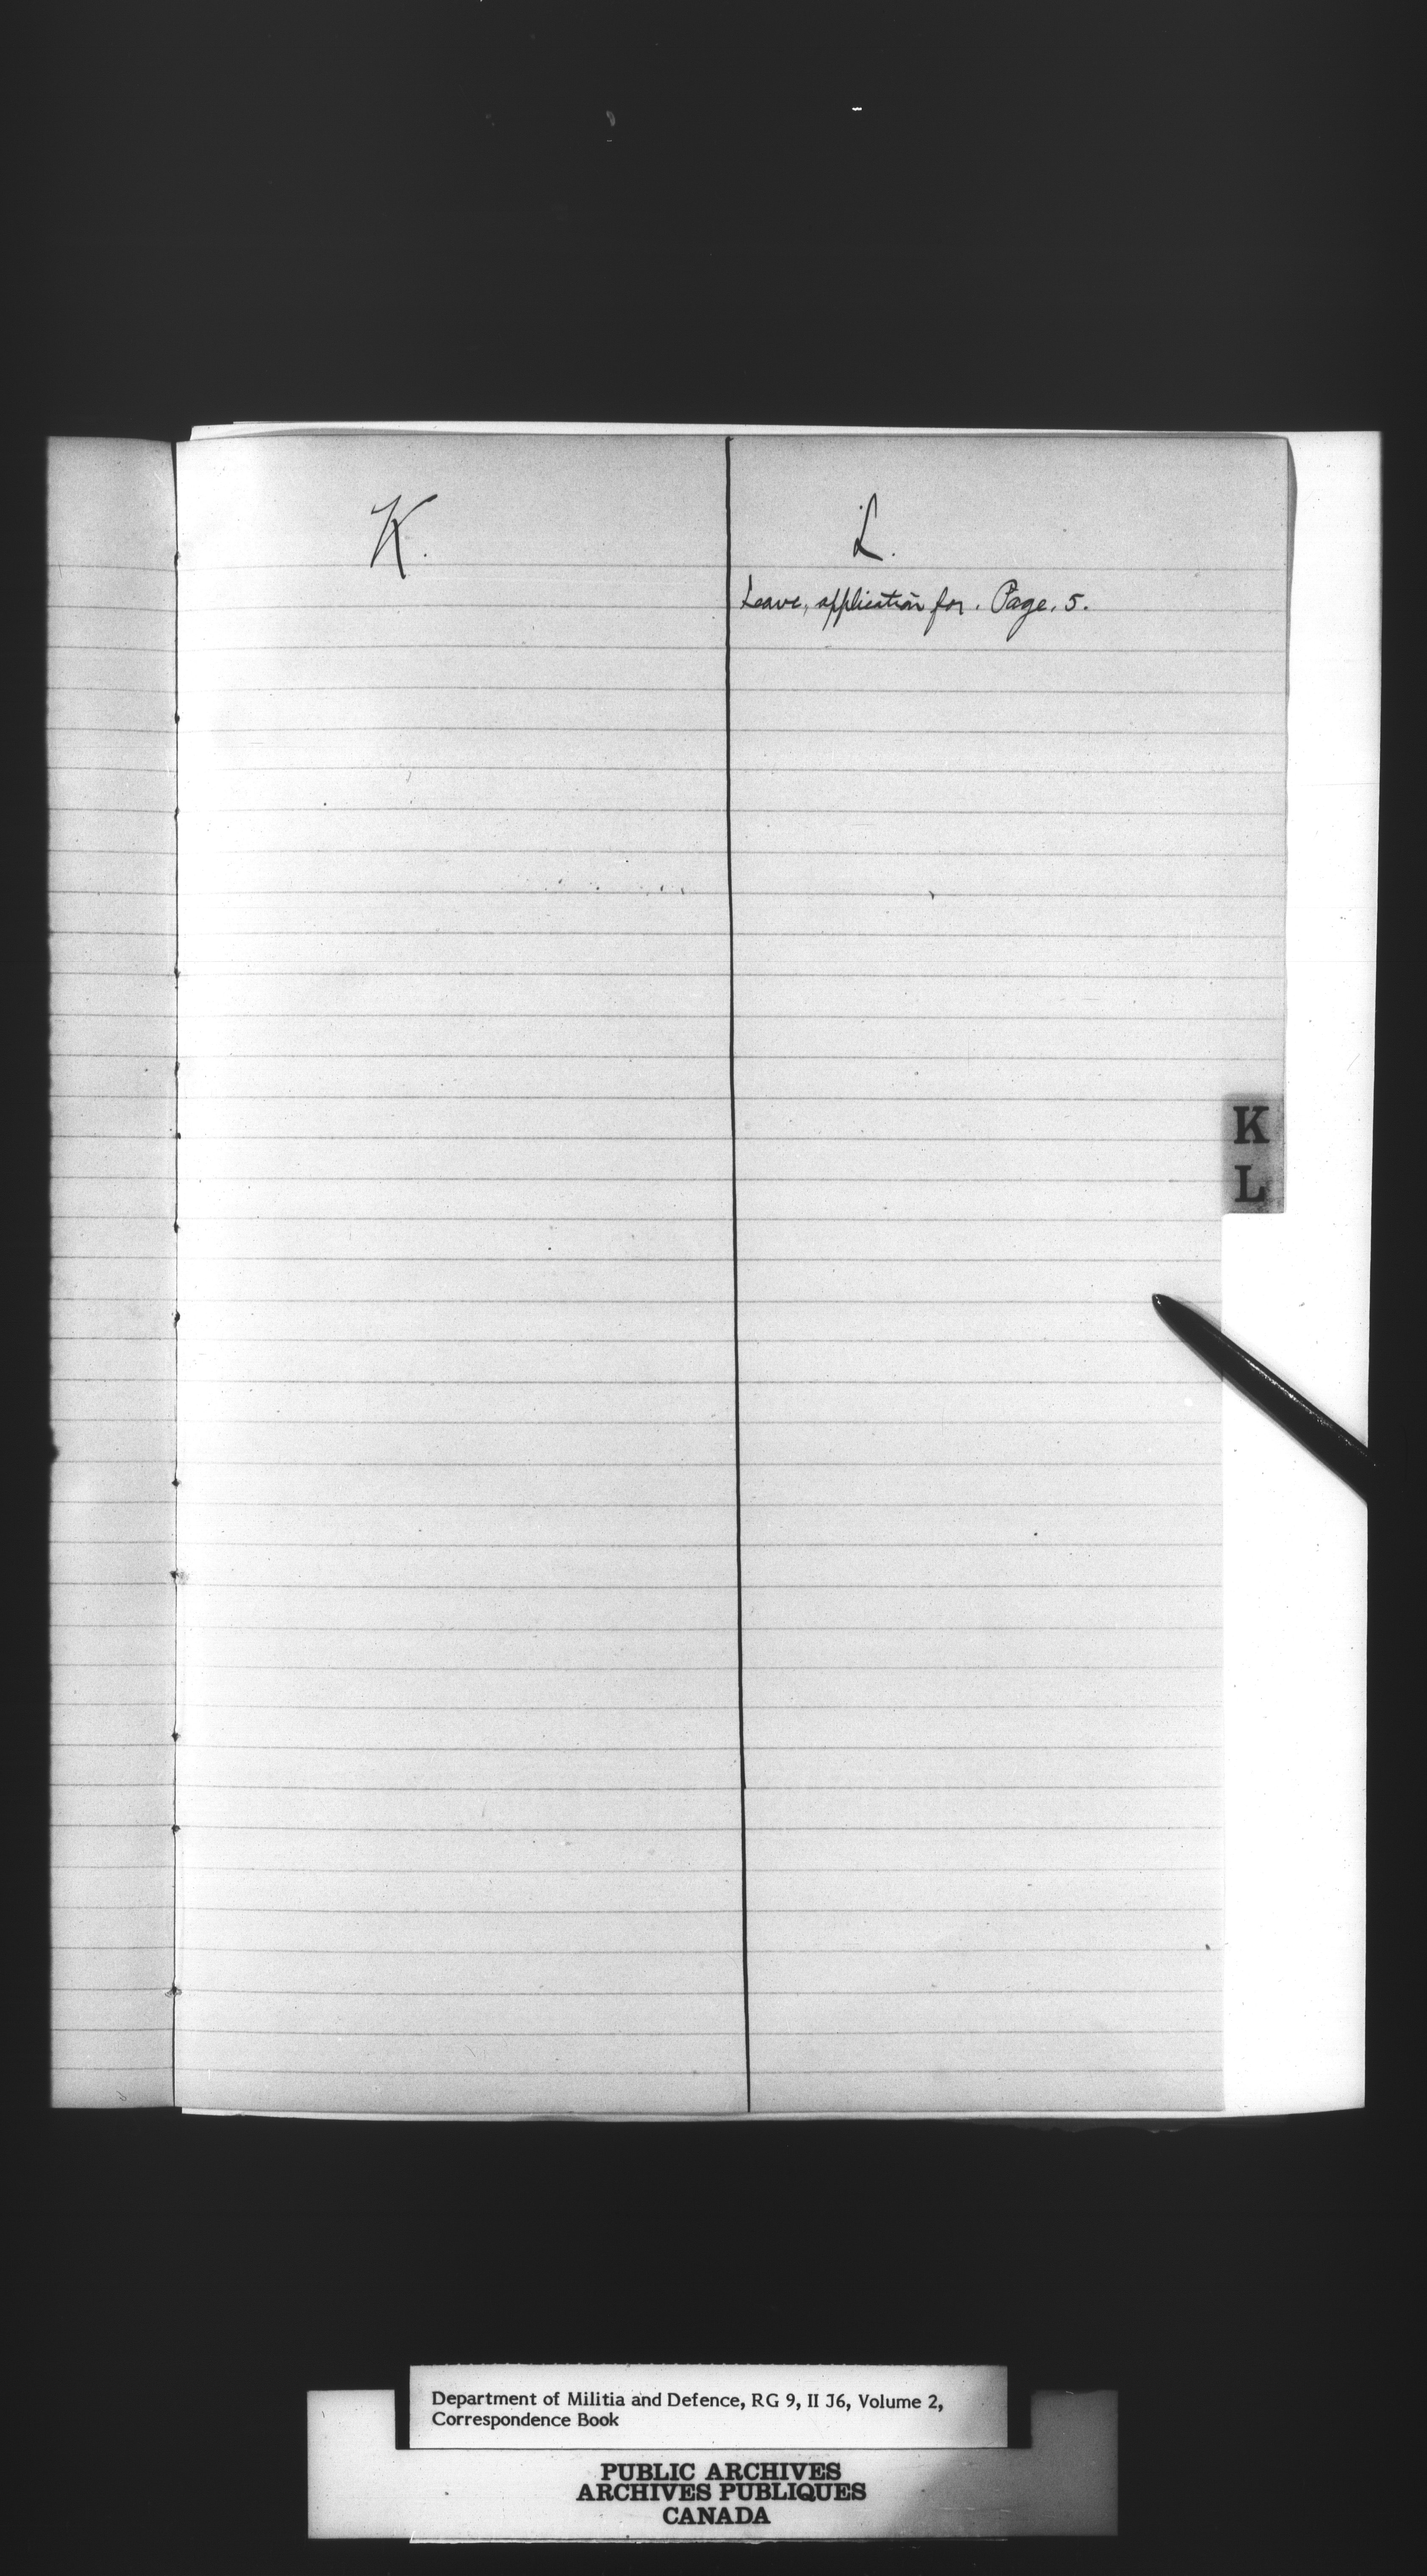 K.
L.
Leave, application for. Page. 5.
K
L
Department of Militia and Defence, RG 9, II J6, Volume 2,
Correspondence Book
PUBLIC ARCHIVES
ARCHIVES PUBLIQUES
CANADA